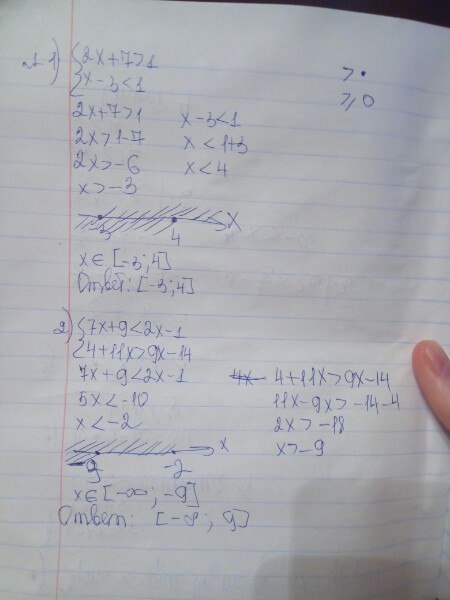 №1 1) {2x+7>1
{x-3<1
> •
≥ ○
2x+7>1 x-3<1
2x>1-7 x<1+3
2x>-6 x<4
x>-3
-3 4 x
x∈[-3;4]
Ответ: [-3;4]
2) {7x+9<2x-1
{4+11x>9x-14
7x+9<2x-1 4+11x>9x-14
5x<-10 11x-9x>-14-4
x<-2 2x>-18
x>-9
-9 -2 x
x∈[-∞; -9]
Ответ: [-∞; 9]